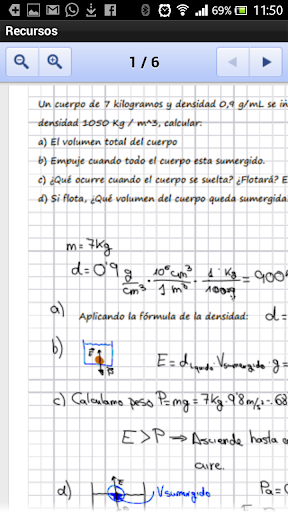 69% 11:50
Recursos
1 / 6
Un cuerpo de 7 kilogramos y densidad 0,9 g/mL se in
densidad 1050 Kg / m^3, calcular:
a) El volumen total del cuerpo
b) Empuje cuando todo el cuerpo esta sumergido.
c) ¿Qué ocurre cuando el cuerpo se suelta? ¿Flotará? E
d) Si flota, ¿Qué volumen del cuerpo queda sumergida
m = 7Kg
d = 0'9 g/cm³ · 10⁶ cm³/1 m³ · 1 Kg/1000g = 900
a) Aplicando la fórmula de la densidad: d =
b) E = d líquido · V sumergido · g =
c) Calculamo peso P = mg = 7Kg · 9'8 m/s² = 68
E > P ⇒ Asciende hasta
aire.
d) E V sumergido Pa =